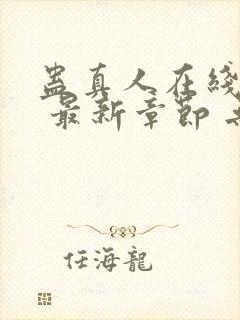 蛊真人在线
最新章节
任海龍